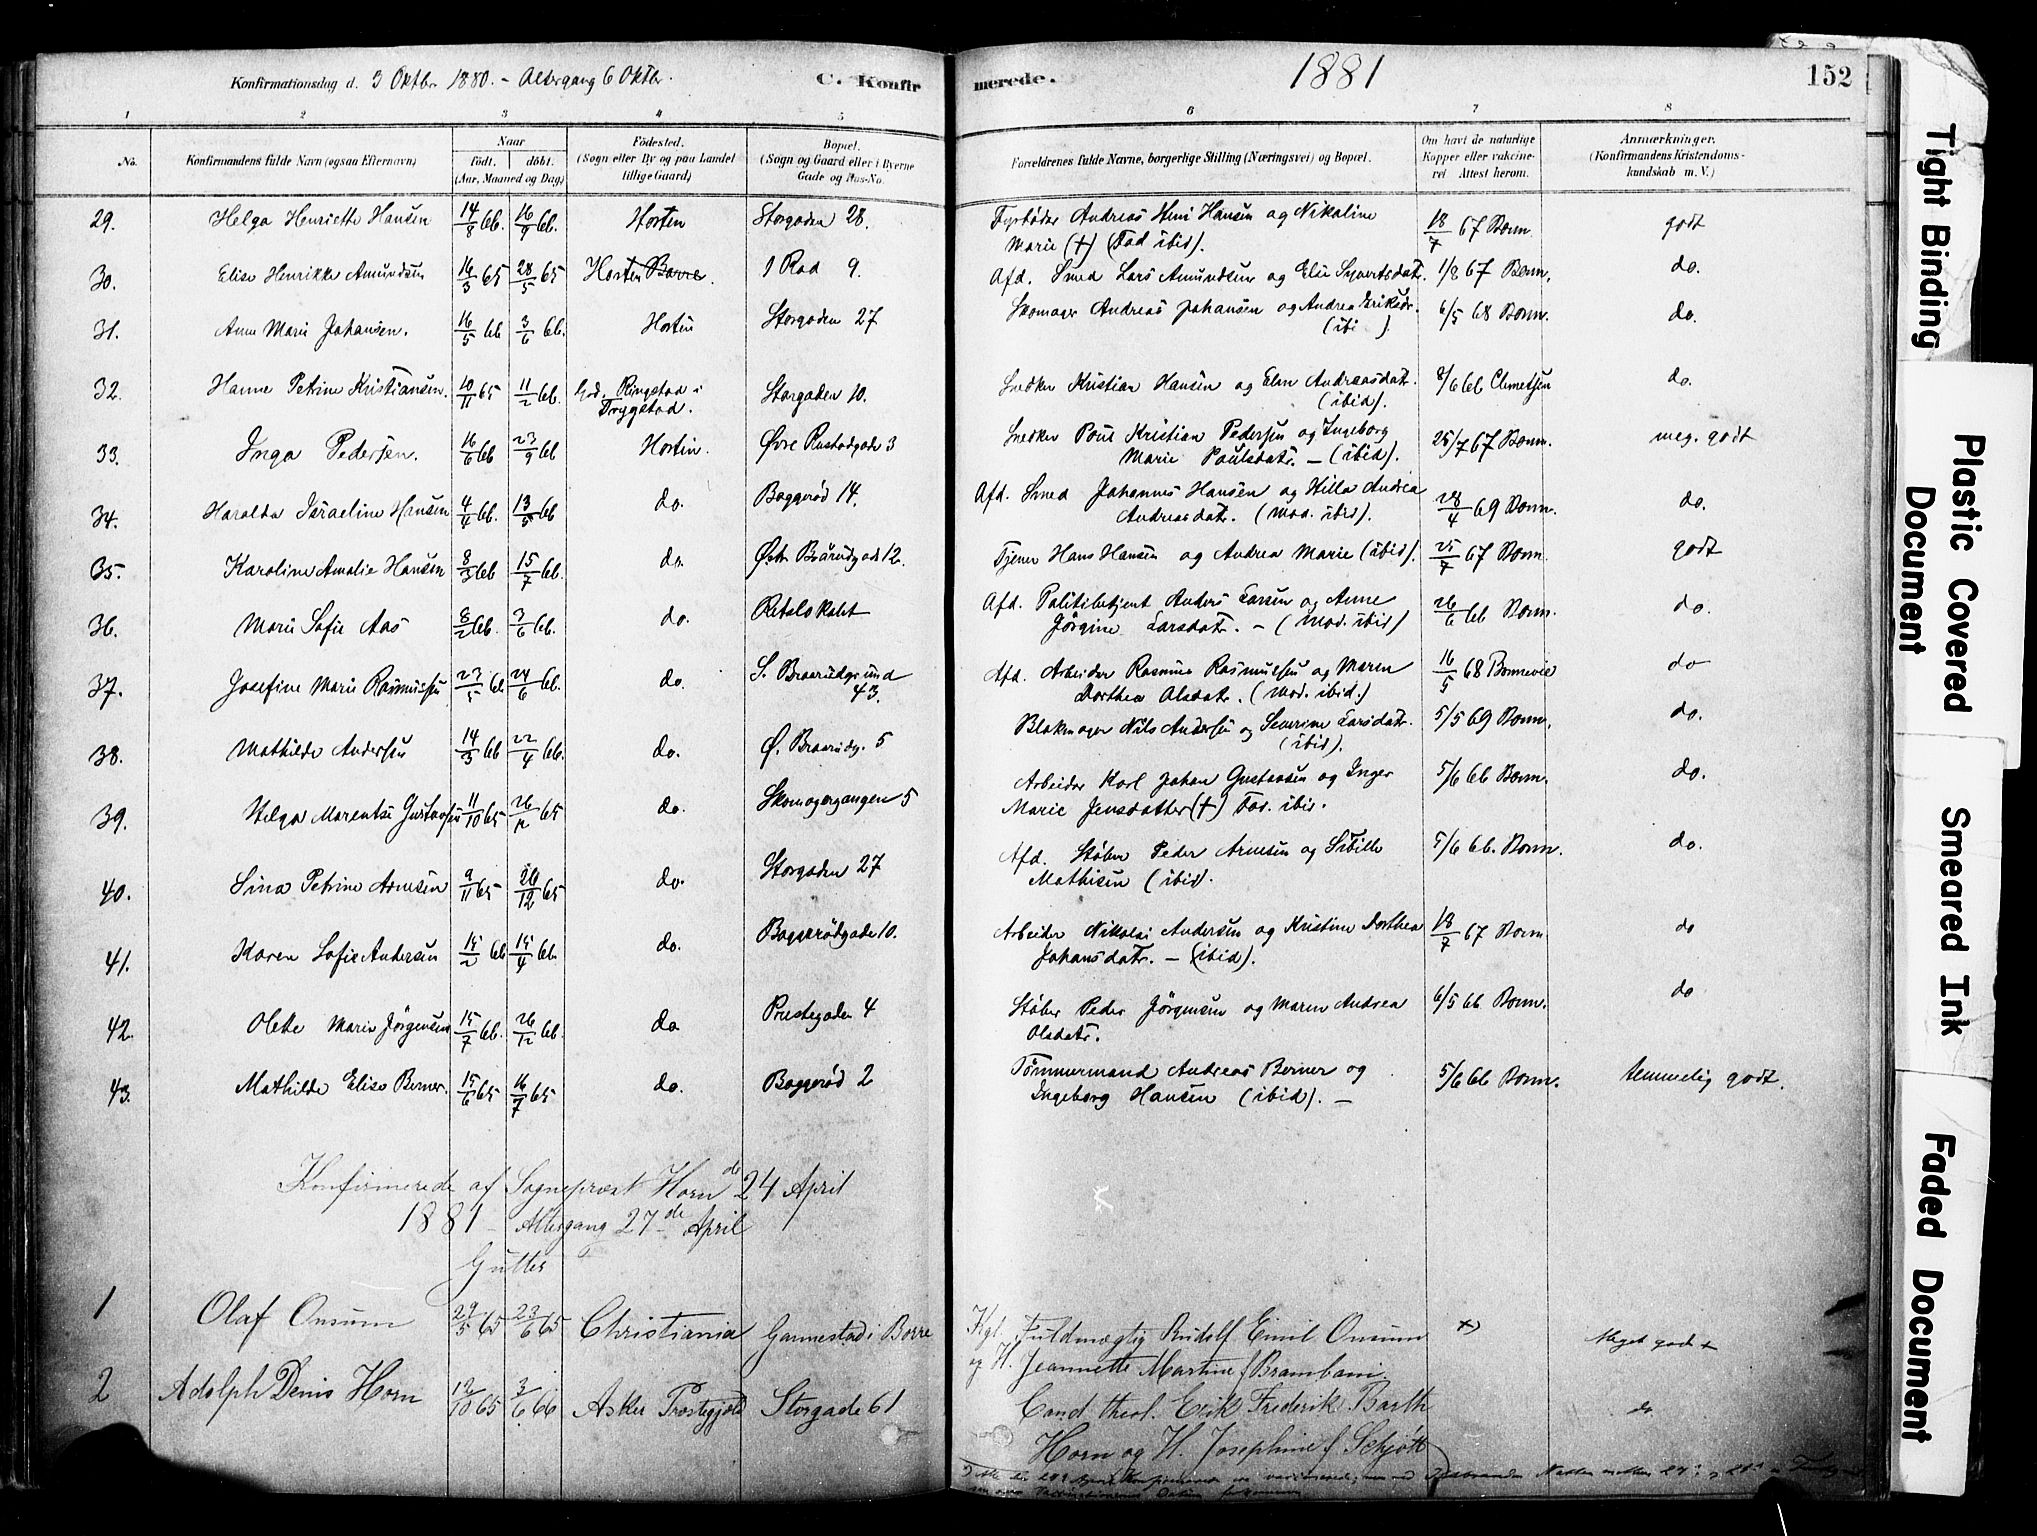 Konfirmationsdag d. 3 Oktbr. 1880. - Altergang 6 Oktbr.
C. Konfirmerede.
1881
152
1 2 3 4 5 6 7 8
No.
Konfirmandens fulde Navn (ogsaa Efternavn)
Naar
födt. döbt.
(Aar, Maaned og Dag)
Födested.
(Sogn eller By og paa Landet
tillige Gaard)
Bopæl.
(Sogn og Gaard eller i Byerne
Gade og Hus-No.
Forældrenes fulde Navne, borgerlige Stilling (Næringsvei) og Bopæl.
Om havt de naturlige
Kopper eller vakcine-
ret Attest herom.
Anmærkninger.
(Konfirmandens Kristendoms-
kundskab m. V.)
29. Helga Henriette Hansen 14/8 66. 16/9 66. Horten Storgaden 28. Fyrbøder Andreas Hansen og Nikoline 18/7 67 Bonn. godt
Marie (+) (Fad ibid).
30. Elise Henrikke Amundsen 16/3 65 28/5 65 Horten Borre. 1 Rad 9. Afd. Smed Lars Amundsen og Elie Syvertsdat. 1/8 67 Bonn. do.
31. Anne Marie Johansen. 16/5 66 3/6 66. Horten Storgaden 27 Skomager Andreas Johansen og Andrea Eriksdr. 6/5 68 Bonn. do.
(ibi )
32. Hanne Petrine Kristiansen. 10/11 65 11/2 66. Gd. Ringstad i Storgaden 10. Snedker Kristian Hansen og Elen Andreasdat. 8/6 66 Clemetsen do.
Trygstad. (ibid).
33. Inga Pedersen. 16/6 66 23/9 66 Horten. Øvre Rustadgade 3 Snedker Poul Kristian Pedersen og Ingeborg 25/7 67 Bonn. meg. godt
Marie Paulsdatr. - (ibid).
34. Haralda Israeline Hansen 4/4 66. 13/5 66 do. Baggerød 14. Afd. Smed Johannes Hansen og Hilla Andrea 28/4 69 Bonn. do.
Andreasdatr. (Mod. ibid).
35. Karoline Amalie Hansen 8/3 66 15/7 66. do. Østr. Brårudgade 12. Tjener Hans Hansen og Andrea Marie (ibid). 25/7 67 Bonn. godt
36. Marie Sofie Aas 8/2 66. 3/6 66. do. Retslokalet Afd. Politibetjent Anders Larsen og Anne 26/6 66 Bonn. do.
Jørgine Larsdatr. - (Mod. ibid)
37. Josefine Marie Rasmussen 23/5 66 24/6 66. do. S. Braarudgrund Afd. Arbeider Rasmus Rasmussen og Maren 16/5 68 Bonnevie do
43. Dorthea Olsdatr. (Mod. ibid.)
38. Mathilde Andersen 14/3 66 22/4 66. do. Ø. Braarudg. 5 Blokmager Nils Andersen og Severine Larsdatr. 5/5 69 Bonn. do.
(ibid).
39. Helga Marentse Gustavsen 11/10 65 26/12 65 do. Skomagergangen 5 Arbeider Karl Johan Gustavsen og Inger 5/6 66 Bonn. do.
Marie Jensdatter (+) Fad. ibid.
40. Sina Petrine Arnesen 9/11 65 26/12 65 do. Storgaden 27 Afd. Støber Peder Arnesen og Sibille 5/6 66. Bonn. do.
Mathisen (ibid).
41. Karen Sofie Andersen 15/2 66 15/4 66. do. Baggerødgade 10. Arbeider Nikolai Andersen og Kristine Dorthea 18/7 67 Bonn. do
Johansdatr. - (ibid).
42. Olette Marie Jørgensen 15/7 66. 26/12 66. do Prestegaden 4 Støber Peder Jørgensen og Maren Andrea 6/5 66 Bonn. do
Olsdatr.
43. Mathilde Elise Berner. 15/6 65 16/7 65 do. Baggerød 2 Tømmermand Andreas Berner og 5/6 66 Bonn. temmelig godt.
Ingeborg Hansen (ibid). -
Konfirmerede af Sogneprest Horn 24de April
1881 - Altergang 27de April
Gutter
1 Olaf Onsum 29/5 65 23/6 65 Christiania Gannestad i Borre Kgl. Fuldmægtig Rudolf Emil Onsum x) Meget godt
og H. Jeannette Martine f. Brambani.
2 Adolph Denis Horn 12/10 65 3/6 66 Asker Præstegjeld Storgade 61 Cand. theol. Erik Frederik Barth do
Horn og H. Josephine f Schjøtt
Tight Binding
Plastic Covered Document
Smeared Ink
Faded Document